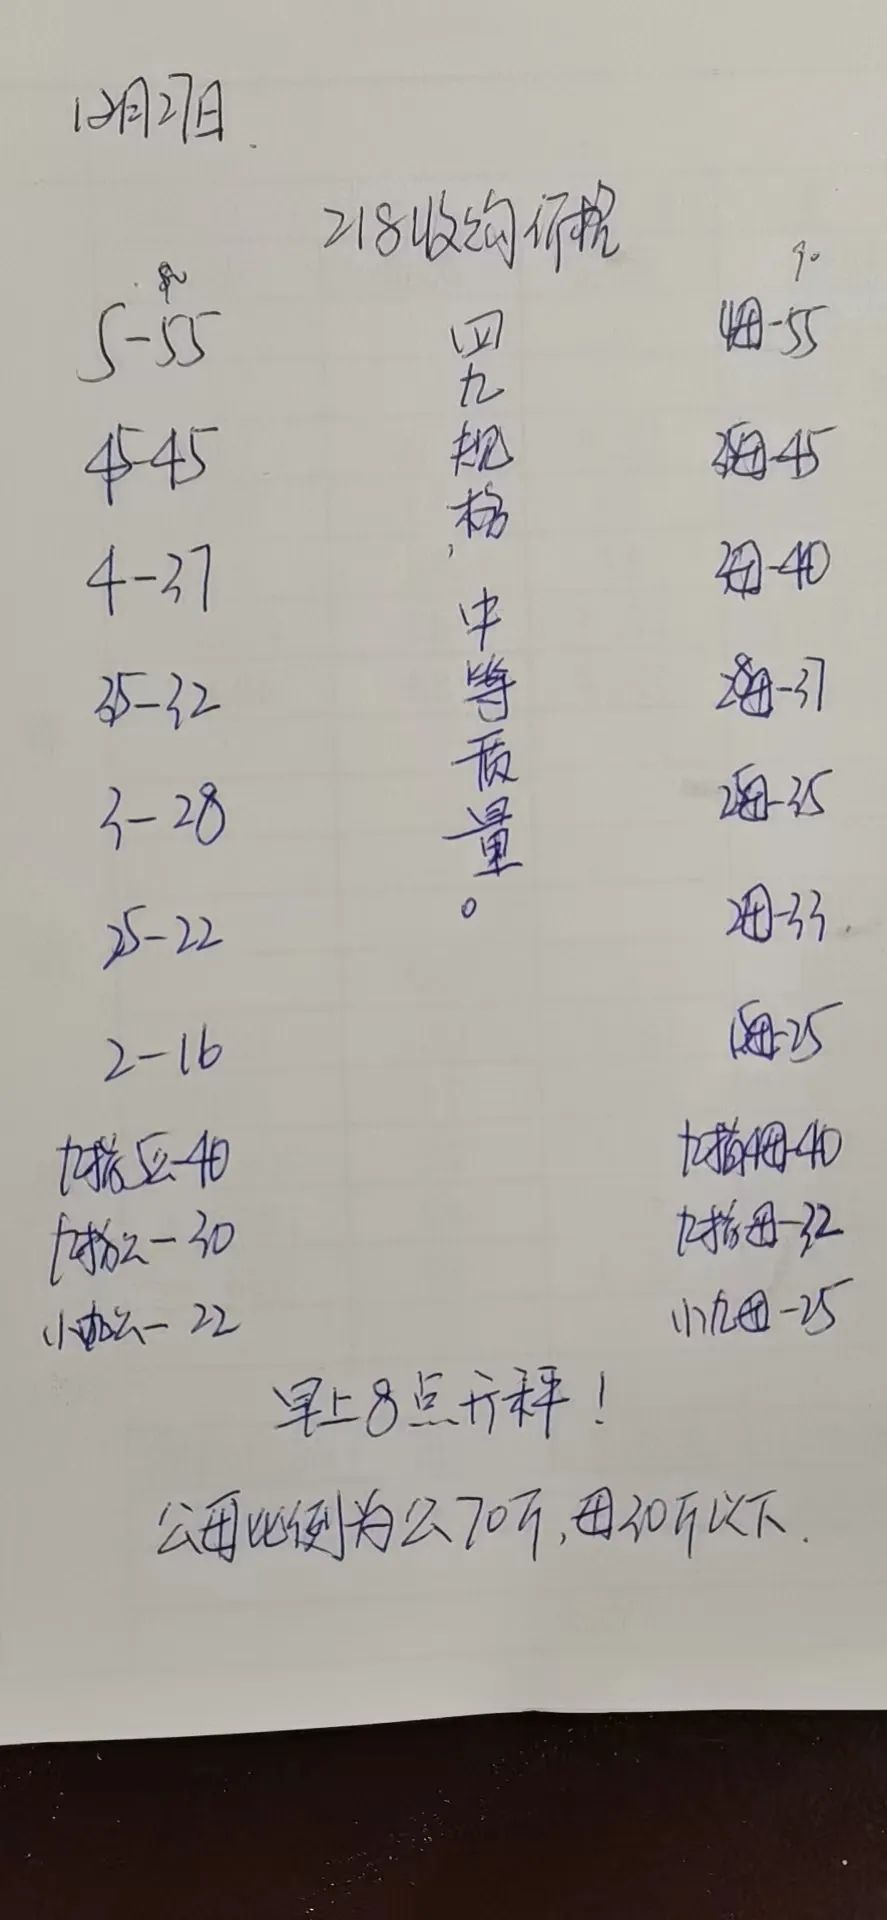 12月27日.
218收购价格
90
5-55
4母-55
45-45
35母-45
4-37
3母-40
35-32
28母-37
3-28
25母-35
25-22
2母-33
2-16
15母-25
四九规格,中等质量。
九指5公-40
九指4母-40
九指公-30
九指母-32
小九公-22
小九母-25
早上8点开秤!
公母比例为公70斤,母30斤以下.